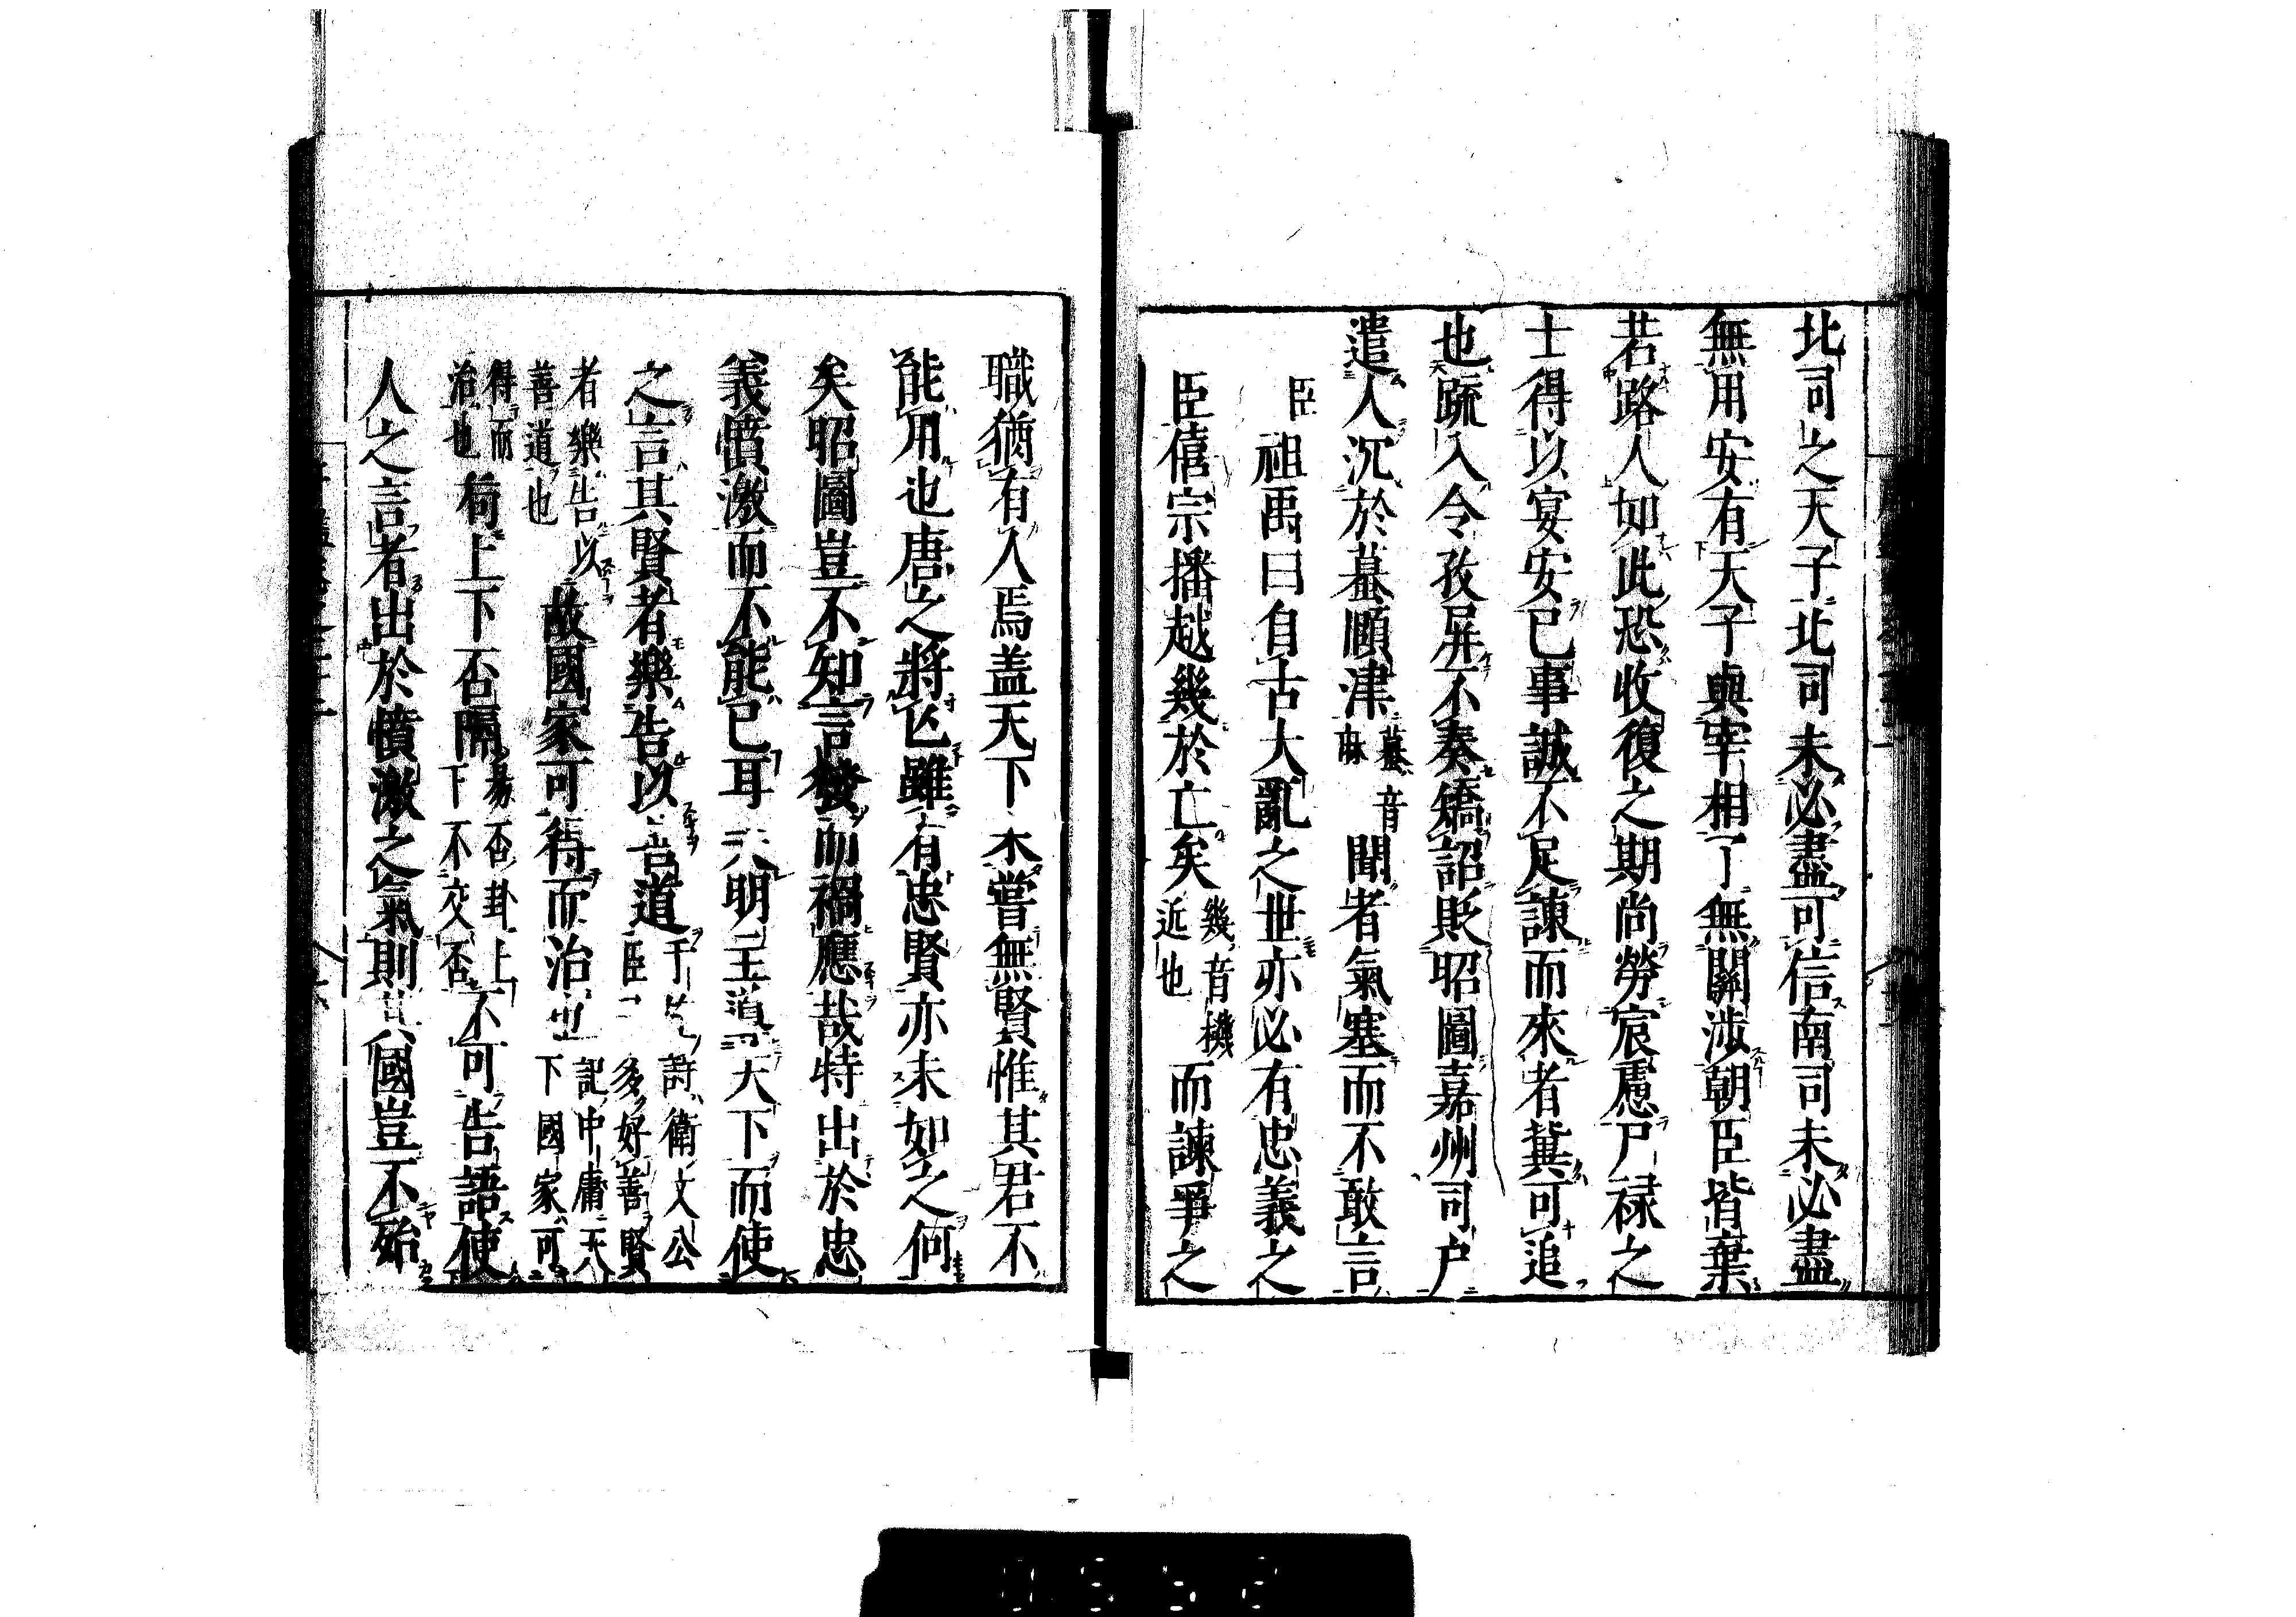 北司之天子北司未必盡可信南司未必盡
無用安有天子與宰相了無關涉朝臣皆棄
若路人如此恐收復之期尚勞宸慮尸禄之
士得以宴安已事誠不足諫而來者冀可追
也疏入令孜屏不奏矯詔貶昭圖嘉州司户
遣人沉於蟇頤津蟇音麻聞者氣塞而不敢言
臣祖禹曰自古大亂之世亦必有忠義之
臣僖宗播越幾於亡矣幾音機近也而諫爭之
職猶有人焉盖天下未嘗無賢惟其君不
能用也唐之將亡雖有忠賢亦未如之何
矣昭圖豈不知言發而禍應哉特出於忠
義憤激而不能已耳夫明王導天下而使
之言其賢者樂告以善道詩衛文公臣子多好善賢
者樂告以善道也故國家可得而治記中庸天下國家可
得而治也苟上下否隔易否卦上下不交否不可告語使
人之言者出於憤激之氣則其國豈不殆